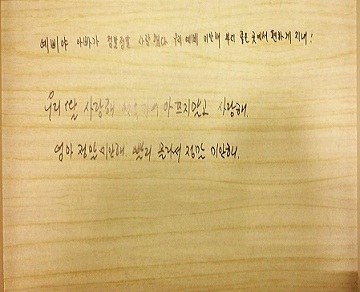 예삐야 아빠가 정말정말 사랑했다 우리 예삐 미안해 부디 좋은 곳에서 편하게 지내!
우리 딸 사랑해 아프지말고 사랑해.
엄마 정말 미안해 빨리 몰라서 정말 미안해.